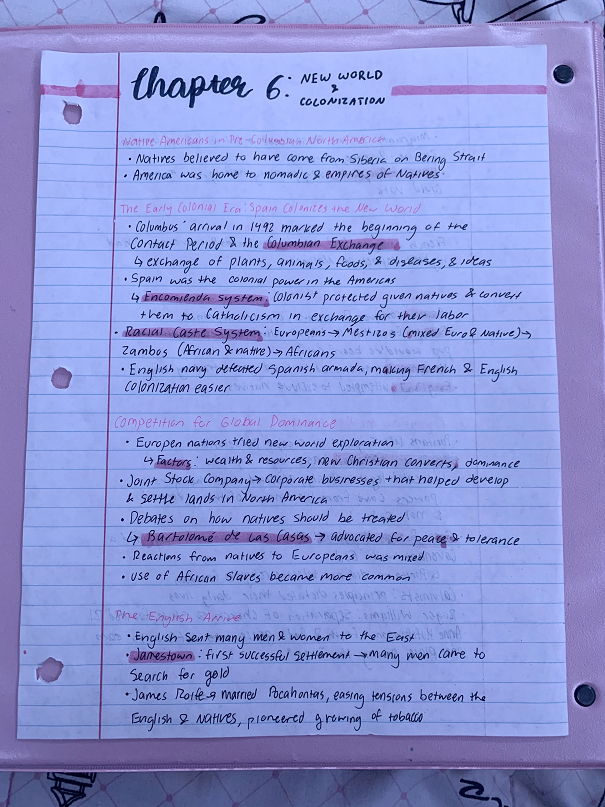 Chapter 6: NEW WORLD
&
COLONIZATION
Native Americans in Pre-Columbian North America
• Natives believed to have come from Siberia on Bering Strait
• America was home to nomadic & empires of Natives
The Early Colonial Era: Spain Colonizes the New World
• Columbus' arrival in 1492 marked the beginning of the
Contact Period & the Columbian Exchange
↳ exchange of plants, animals, foods, & diseases, & ideas
• Spain was the colonial power in the Americas
↳ Encomienda system: Colonist protected given natives & convert
them to Catholicism in exchange for their labor
• Racial Caste System: Europeans → Mestizos (mixed Euro & Native) →
zambos (African & native) → Africans
• English navy defeated Spanish armada, making French & English
colonization easier
Competition for Global Dominance
• Europen nations tried new world exploration
↳ Factors: wealth & resources, new Christian converts, dominance
• Joint Stock Company → corporate businesses that helped develop
& settle lands in North America
• Debates on how natives should be treated
↳ Bartolomé de Las Casas → advocated for peace & tolerance
• Reactions from natives to Europeans was mixed
• use of African Slaves became more common
The English Arrive
• English sent many men & women to the East
• Jamestown: first successful settlement → many men came to
search for gold
• James Rolfe → married Pocahontas, easing tensions between the
English & Natives, pioneered growing of tobacco